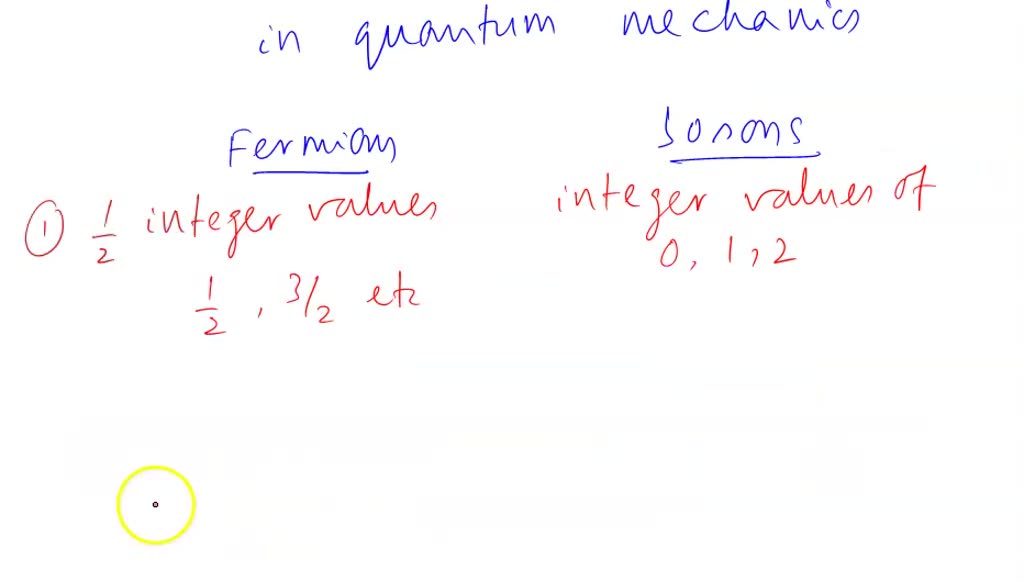 in quantum mechanics
Fermions
Bosons
① 1/2 integer values
1/2, 3/2 etc
integer values of
0, 1, 2